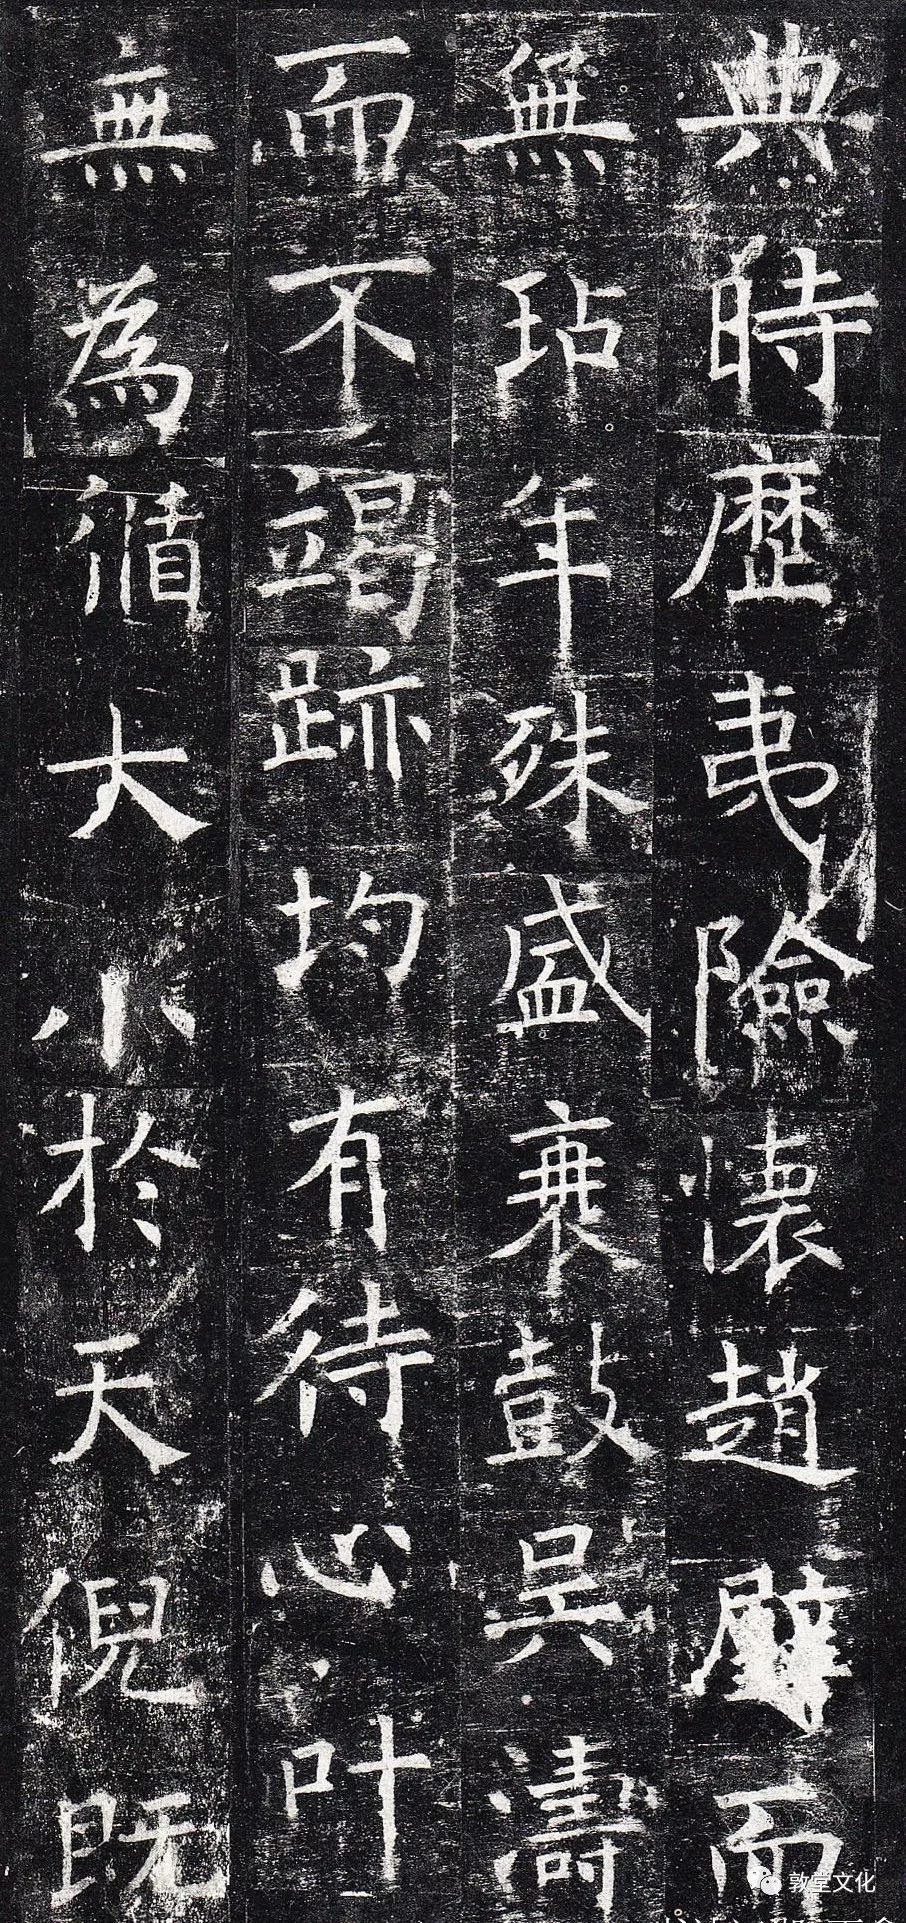 典時歷夷險懷趙璧而
無玷年殊盛衰鼓吳濤
而不竭跡均有待心叶
無為循大小於天倪既
敦堂文化